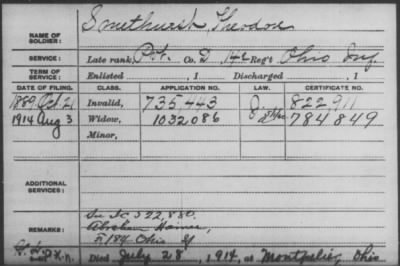 NAME OF SOLDIER: Smethurst, Theodore
SERVICE: Late rank, Pvt. Co. D, 142 Reg't Ohio Inf
TERM OF SERVICE: Enlisted , 1 Discharged , 1
DATE OF FILING. CLASS. APPLICATION NO. CERTIFICATE NO.
1889 Oct. 21 Invalid, 735.443 822.911
1914 Aug 3 Widow, 1032086 784849
Minor,
ADDITIONAL SERVICES:
REMARKS: 522,880.
Abraham Homer,
F 184 Ohio
Died July 28, 1914, at Montpelier, Ohio